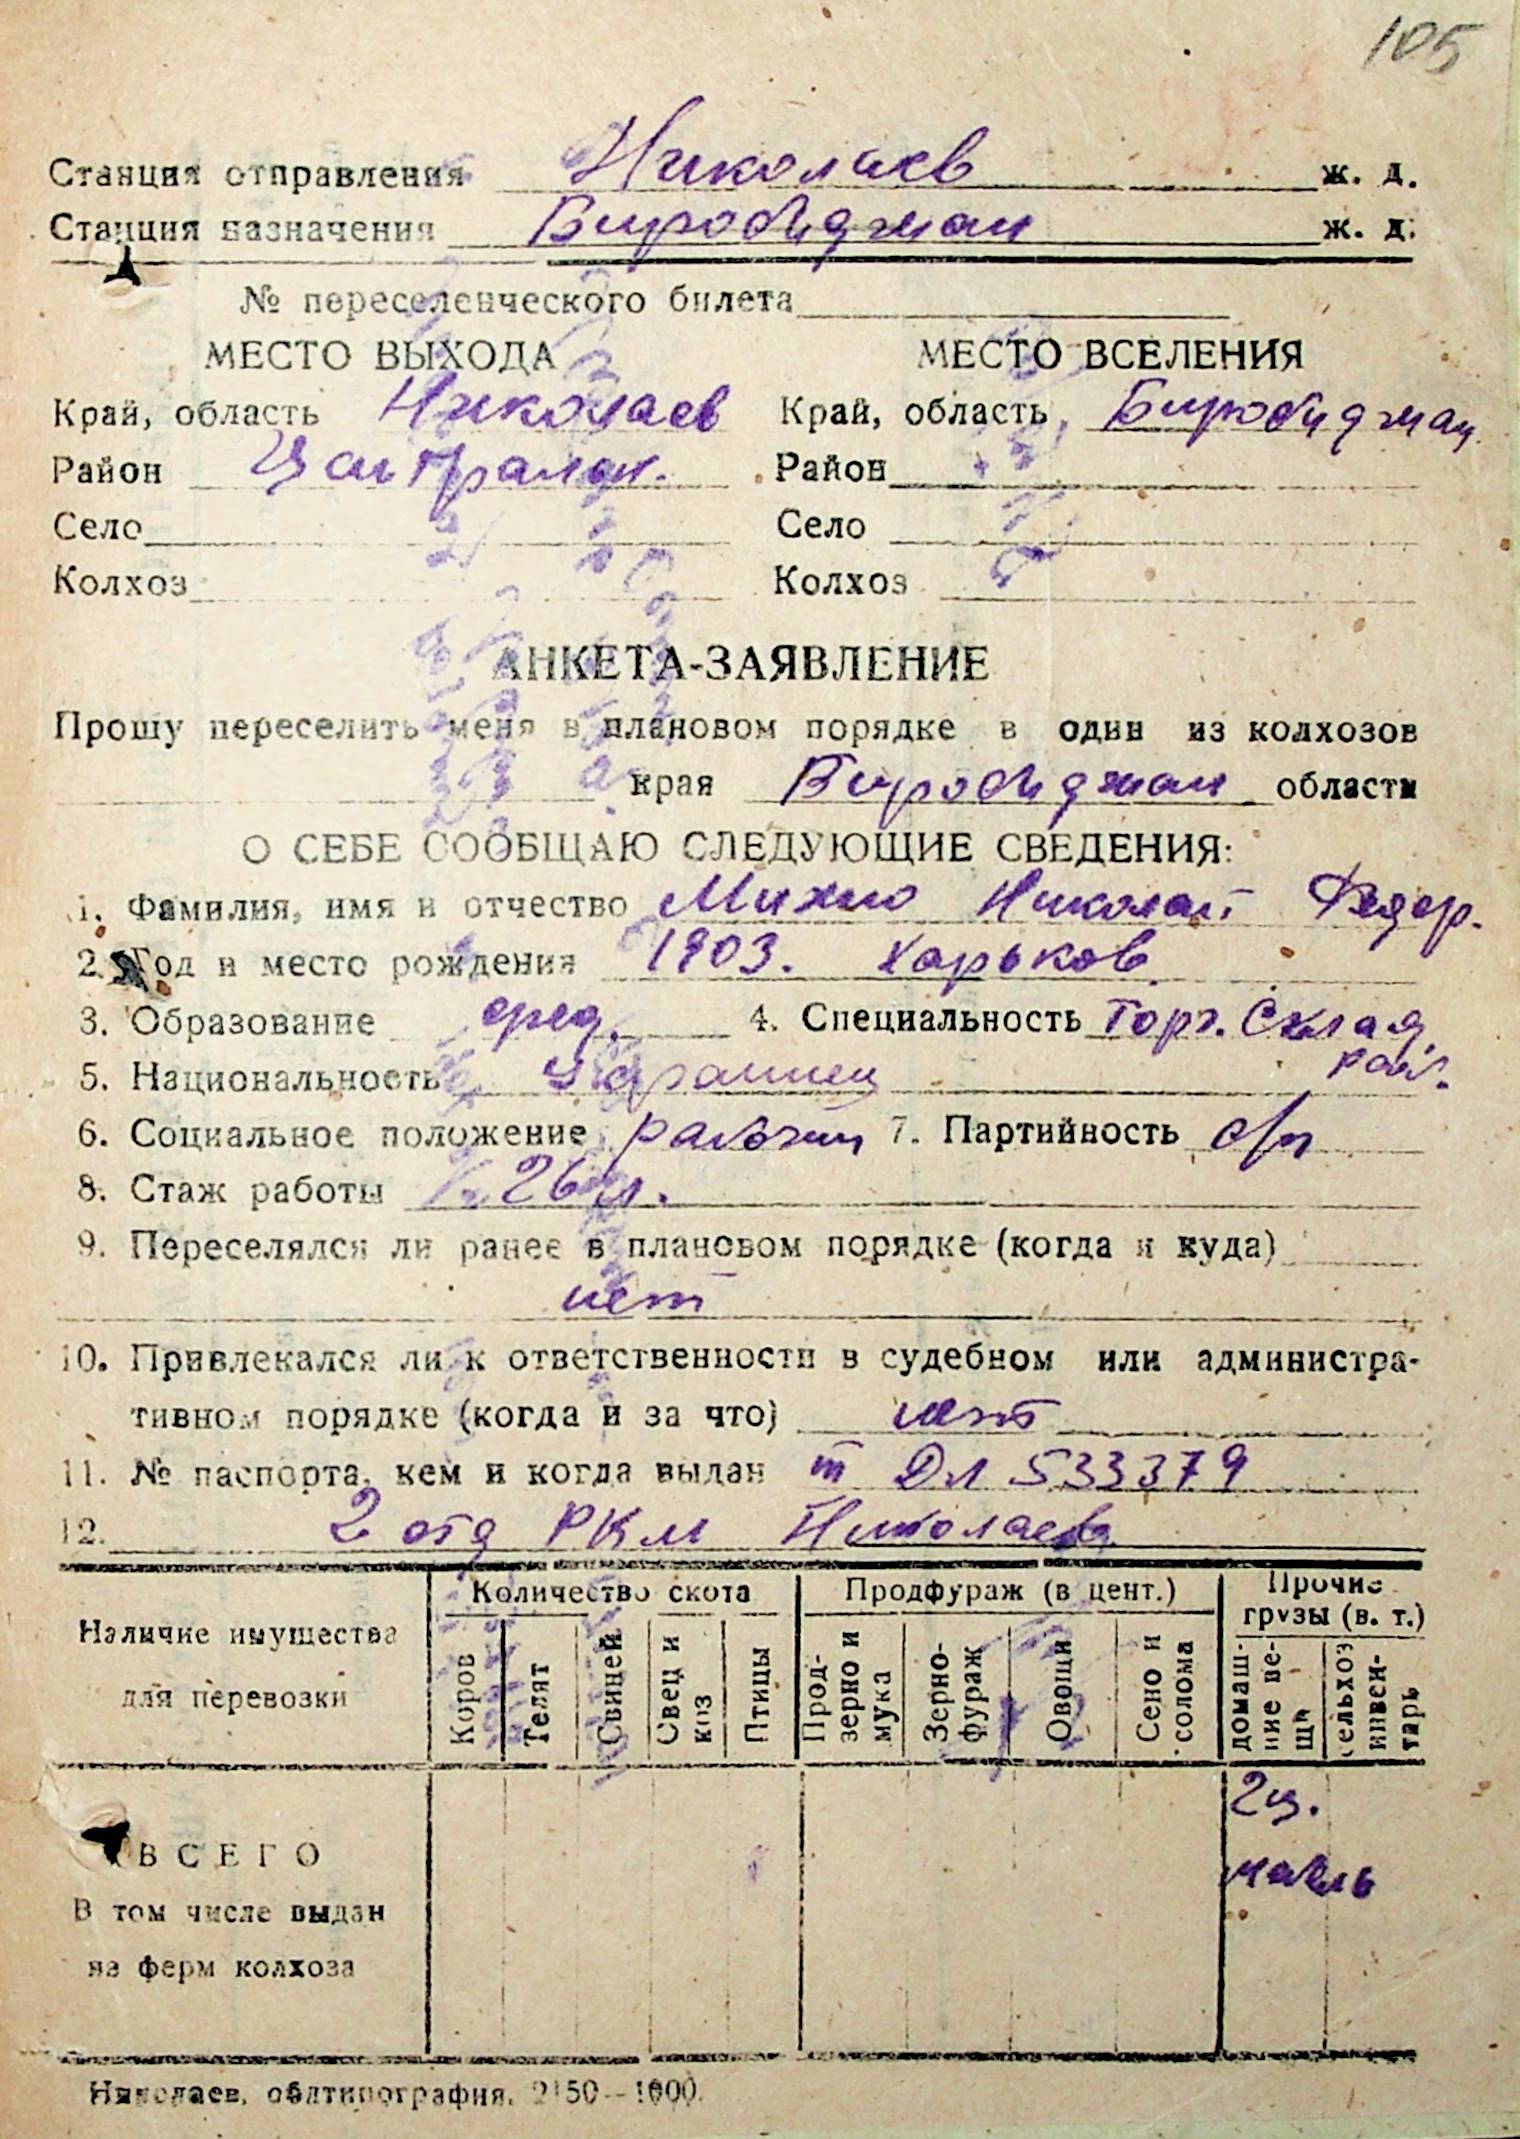 105
Станция отправления Николаев ж. д.
Станция назначения Биробиджан ж. д.
№ переселенческого билета
МЕСТО ВЫХОДА МЕСТО ВСЕЛЕНИЯ
Край, область Николаев Край, область Биробиджан
Район Централн. Район
Село Село
Колхоз Колхоз
АНКЕТА-ЗАЯВЛЕНИЕ
Прошу переселить меня в плановом порядке в один из колхозов
края Биробиджан области
О СЕБЕ СООБЩАЮ СЛЕДУЮЩИЕ СВЕДЕНИЯ:
1. Фамилия, имя и отчество Михно Николай Федор.
2. Год и место рождения 1903. Харьков
3. Образование сред. 4. Специальность Торг. Склад.
5. Национальность Украинец раб.
6. Социальное положение рабочий 7. Партийность б/п
8. Стаж работы 26 л.
9. Переселялся ли ранее в плановом порядке (когда и куда)
нет
10. Привлекался ли к ответственности в судебном или администра-
тивном порядке (когда и за что) нет
11. № паспорта, кем и когда выдан ДЛ 533379
12. 2 отд РКМ Николаева
Количество скота Продфураж (в цент.) Прочие
грузы (в. т.)
Наличие имущества
для перевозки
Коров
Телят
Свиней
Овец и
коз
Птицы
Прод-
зерно и
мука
Зерно-
фураж
Овощи
Сено и
солома
домаш-
ние ве-
щи
сельхоз
инвен-
тарь
2ц.
мебль
ВСЕГО
В том числе выдан
на ферм колхоза
Николаев, облтипография. 2150—1000.